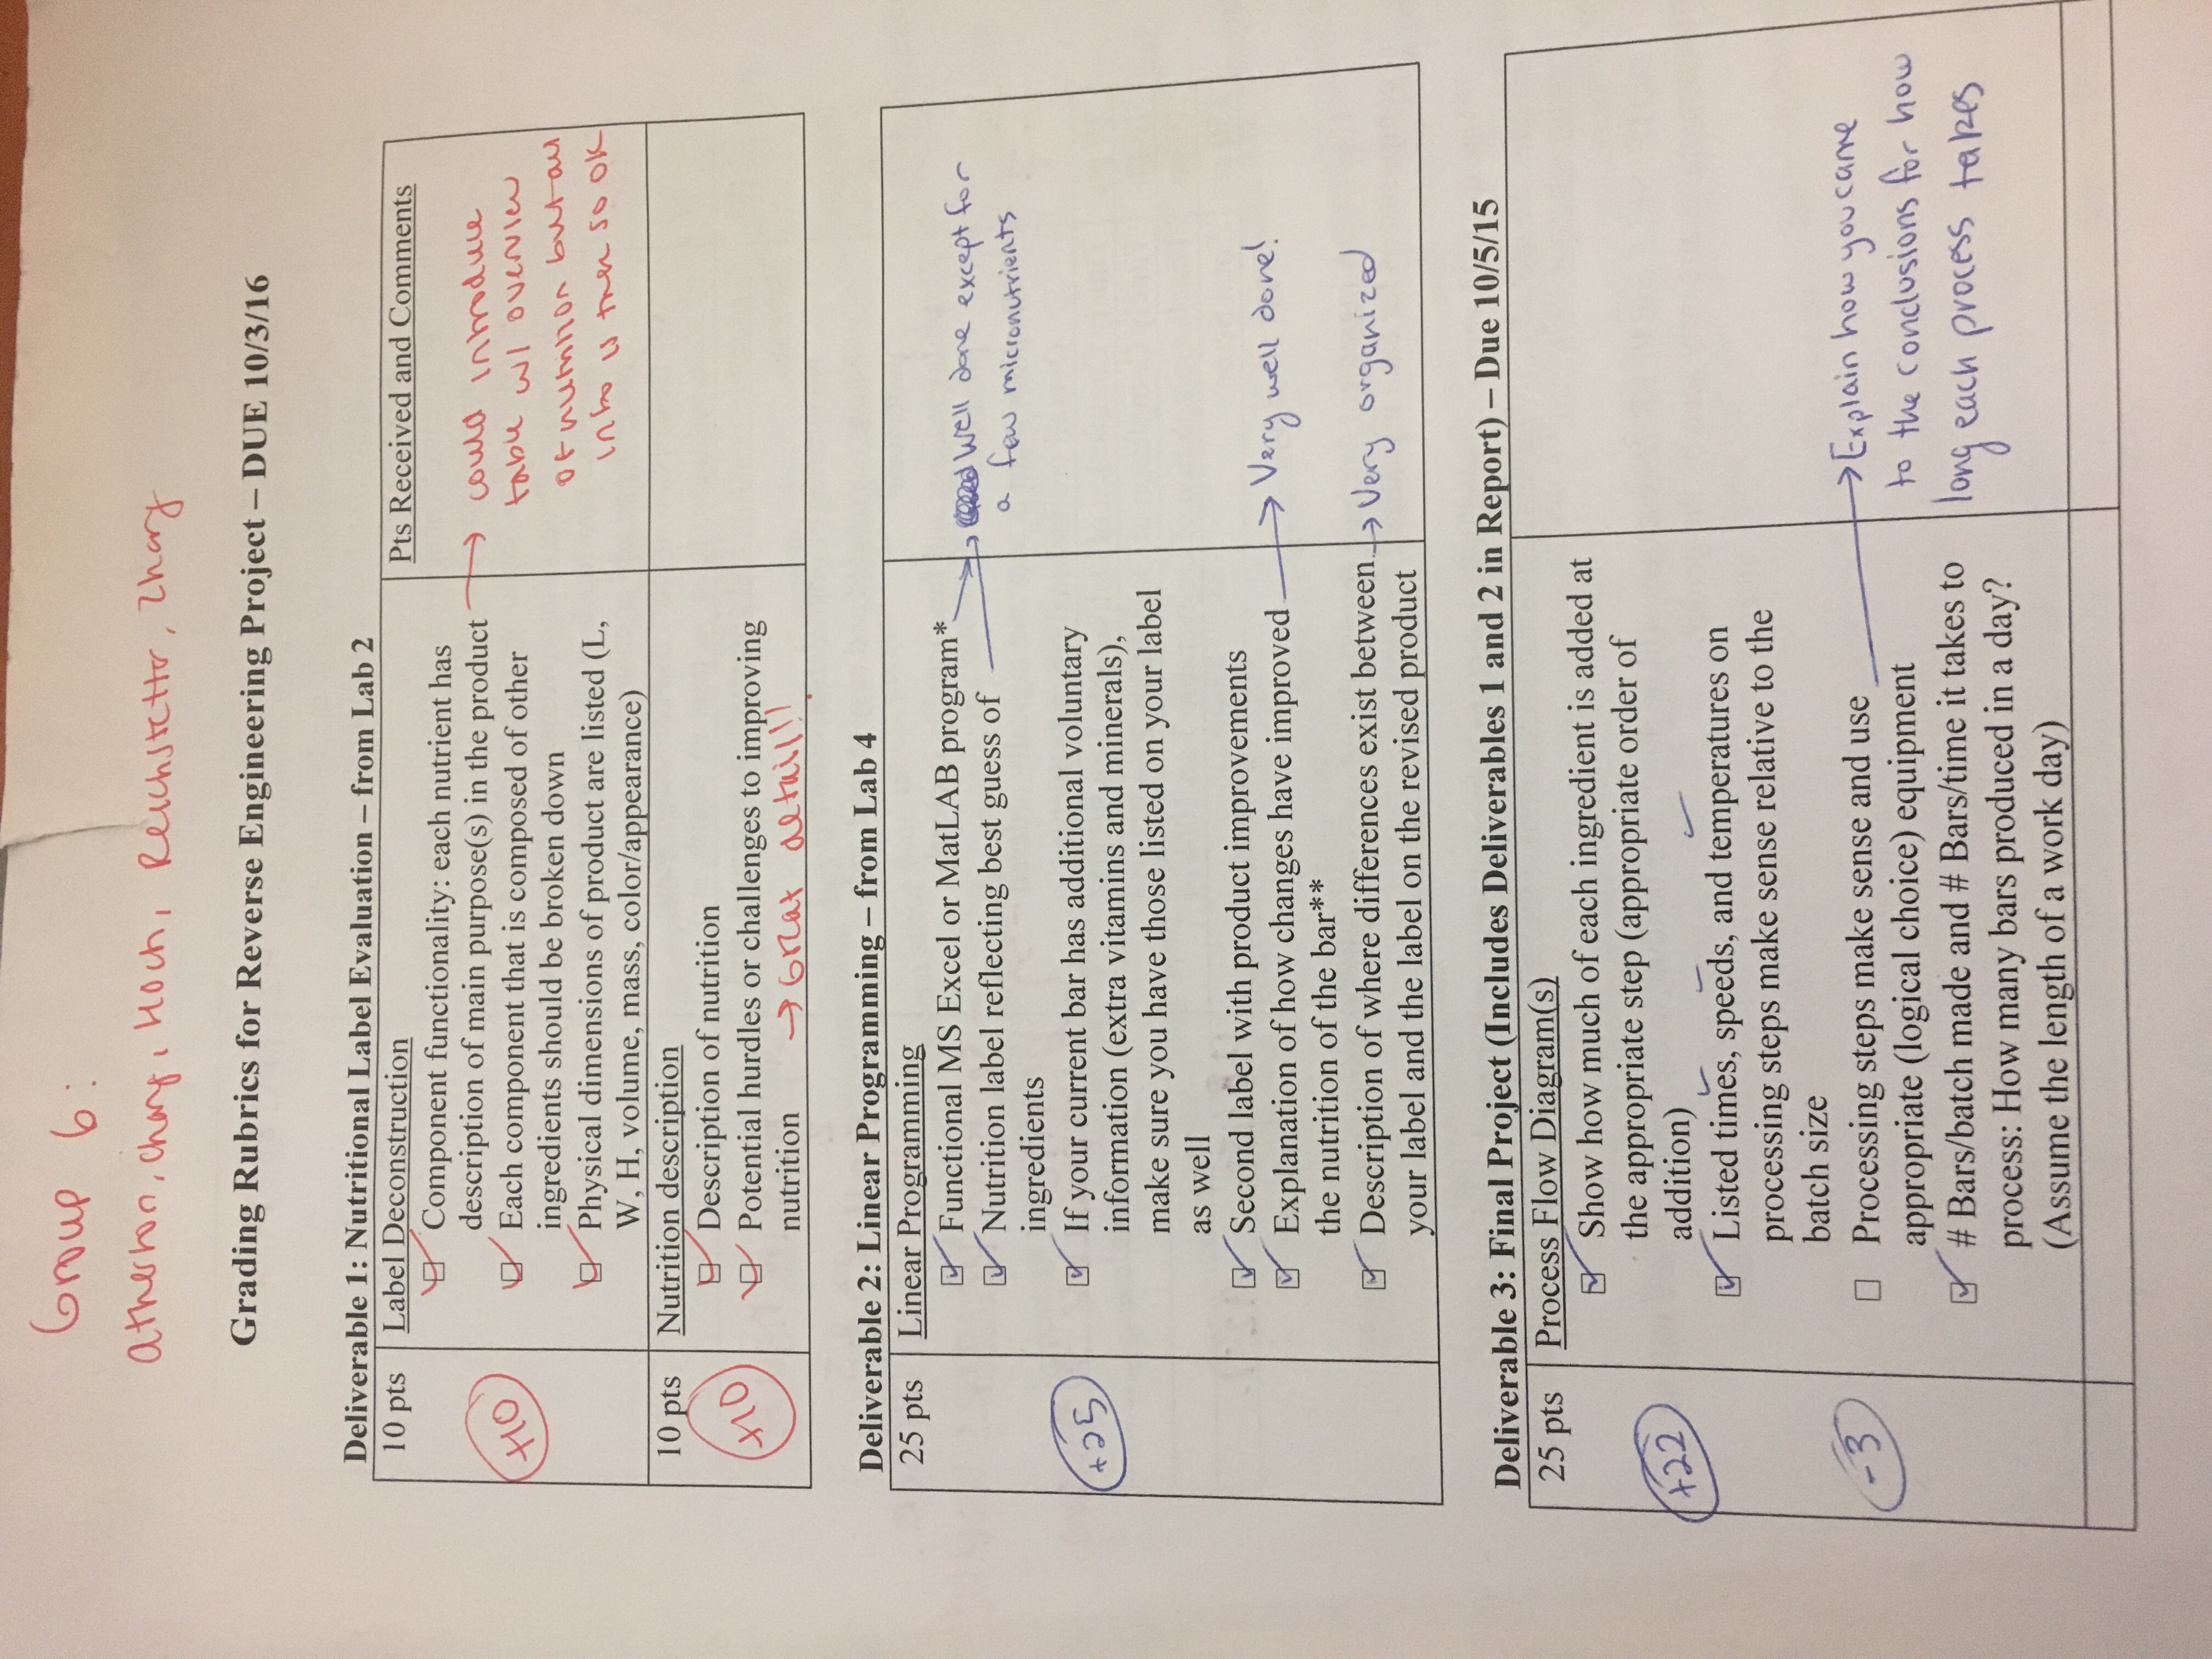 Group 6:
Atherton, Chang, Hoch, Reichstetter, Zhang
Grading Rubrics for Reverse Engineering Project – DUE 10/3/16
Deliverable 1: Nutritional Label Evaluation – from Lab 2
10 pts
+10
Label Deconstruction
Component functionality: each nutrient has
description of main purpose(s) in the product
Each component that is composed of other
ingredients should be broken down
Physical dimensions of product are listed (L,
W, H, volume, mass, color/appearance)
Pts Received and Comments
→ could introduce
table w/ overview
of nutrition but all
info is there so OK
10 pts
+10
Nutrition description
Description of nutrition
Potential hurdles or challenges to improving
nutrition → Great detail!!
Deliverable 2: Linear Programming – from Lab 4
25 pts
+25
Linear Programming
Functional MS Excel or MatLAB program*
Nutrition label reflecting best guess of
ingredients
If your current bar has additional voluntary
information (extra vitamins and minerals),
make sure you have those listed on your label
as well
Second label with product improvements
Explanation of how changes have improved
the nutrition of the bar**
Description of where differences exist between
your label and the label on the revised product
→ Well done except for
a few micronutrients
→ Very well done!
→ Very organized
Deliverable 3: Final Project (Includes Deliverables 1 and 2 in Report) – Due 10/5/15
25 pts
+22
-3
Process Flow Diagram(s)
Show how much of each ingredient is added at
the appropriate step (appropriate order of
addition)
Listed times, speeds, and temperatures on
processing steps make sense relative to the
batch size
Processing steps make sense and use
appropriate (logical choice) equipment
# Bars/batch made and # Bars/time it takes to
process: How many bars produced in a day?
(Assume the length of a work day)
→ Explain how you came
to the conclusions for how
long each process takes